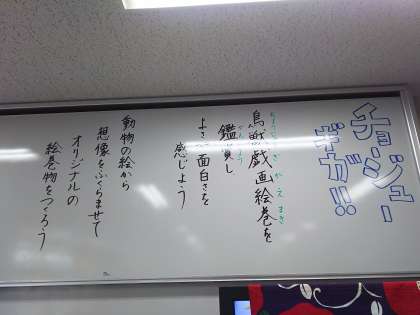 チョージュー
ギガ!!
ちょうじゅうぎがえまき
鳥獣戯画絵巻を
かんしょう
鑑賞し
よさや面白さを
感じよう
動物の絵から
想像をふくらませて
オリジナルの
絵巻物をつくろう